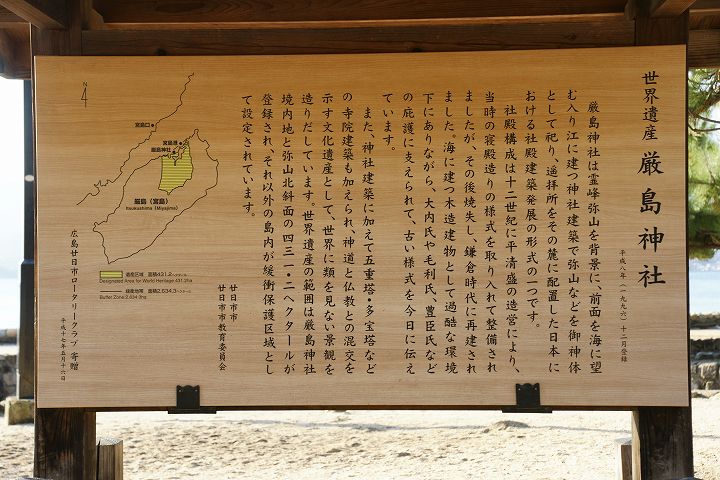 世界遺産 厳島神社
平成八年(一九九六)十二月登録
厳島神社は霊峰弥山を背景に、前面を海に望
む入り江に建つ神社建築で弥山などを御神体
として祀り、遥拝所をその麓に配置した日本に
おける社殿建築発展の形式の一つです。
社殿構成は十二世紀に平清盛の造営により、
当時の寝殿造りの様式を取り入れて整備され
ましたが、その後焼失し、鎌倉時代に再建され
ました。海に建つ木造建物として過酷な環境
下にありながら、大内氏や毛利氏、豊臣氏など
の庇護に支えられて、古い様式を今日に伝え
ています。
また、神社建築に加えて五重塔・多宝塔など
の寺院建築も加えられ、神道と仏教との混交を
示す文化遺産として、世界に類を見ない景観を
造りだしています。世界遺産の範囲は厳島神社
境内地と弥山北斜面の四三一・二ヘクタールが
登録され、それ以外の島内が緩衝保護区域とし
て設定されています。
廿日市市
廿日市市教育委員会
N
宮島口
宮島港
厳島神社
厳島(宮島)
Itsukushima (Miyajima)
遺産区域 面積431.2ヘクタール
Designated Area for World Heritage 431.2ha
緩衝地帯 面積2,634.3ヘクタール
Buffer Zone 2,634.3ha
広島廿日市ロータリークラブ 寄贈
平成十七年五月十六日